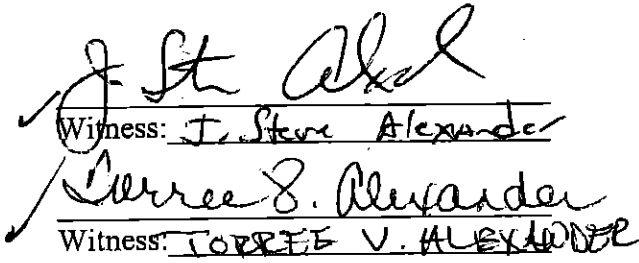 J. Steve Alexander
Witness: J. Steve Alexander
Torree V. Alexander
Witness: TORREE V. ALEXANDER